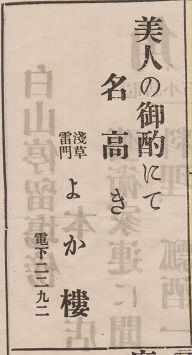 美人の御酌にて
名高き
淺草
雷門
よか樓
電下二二九二